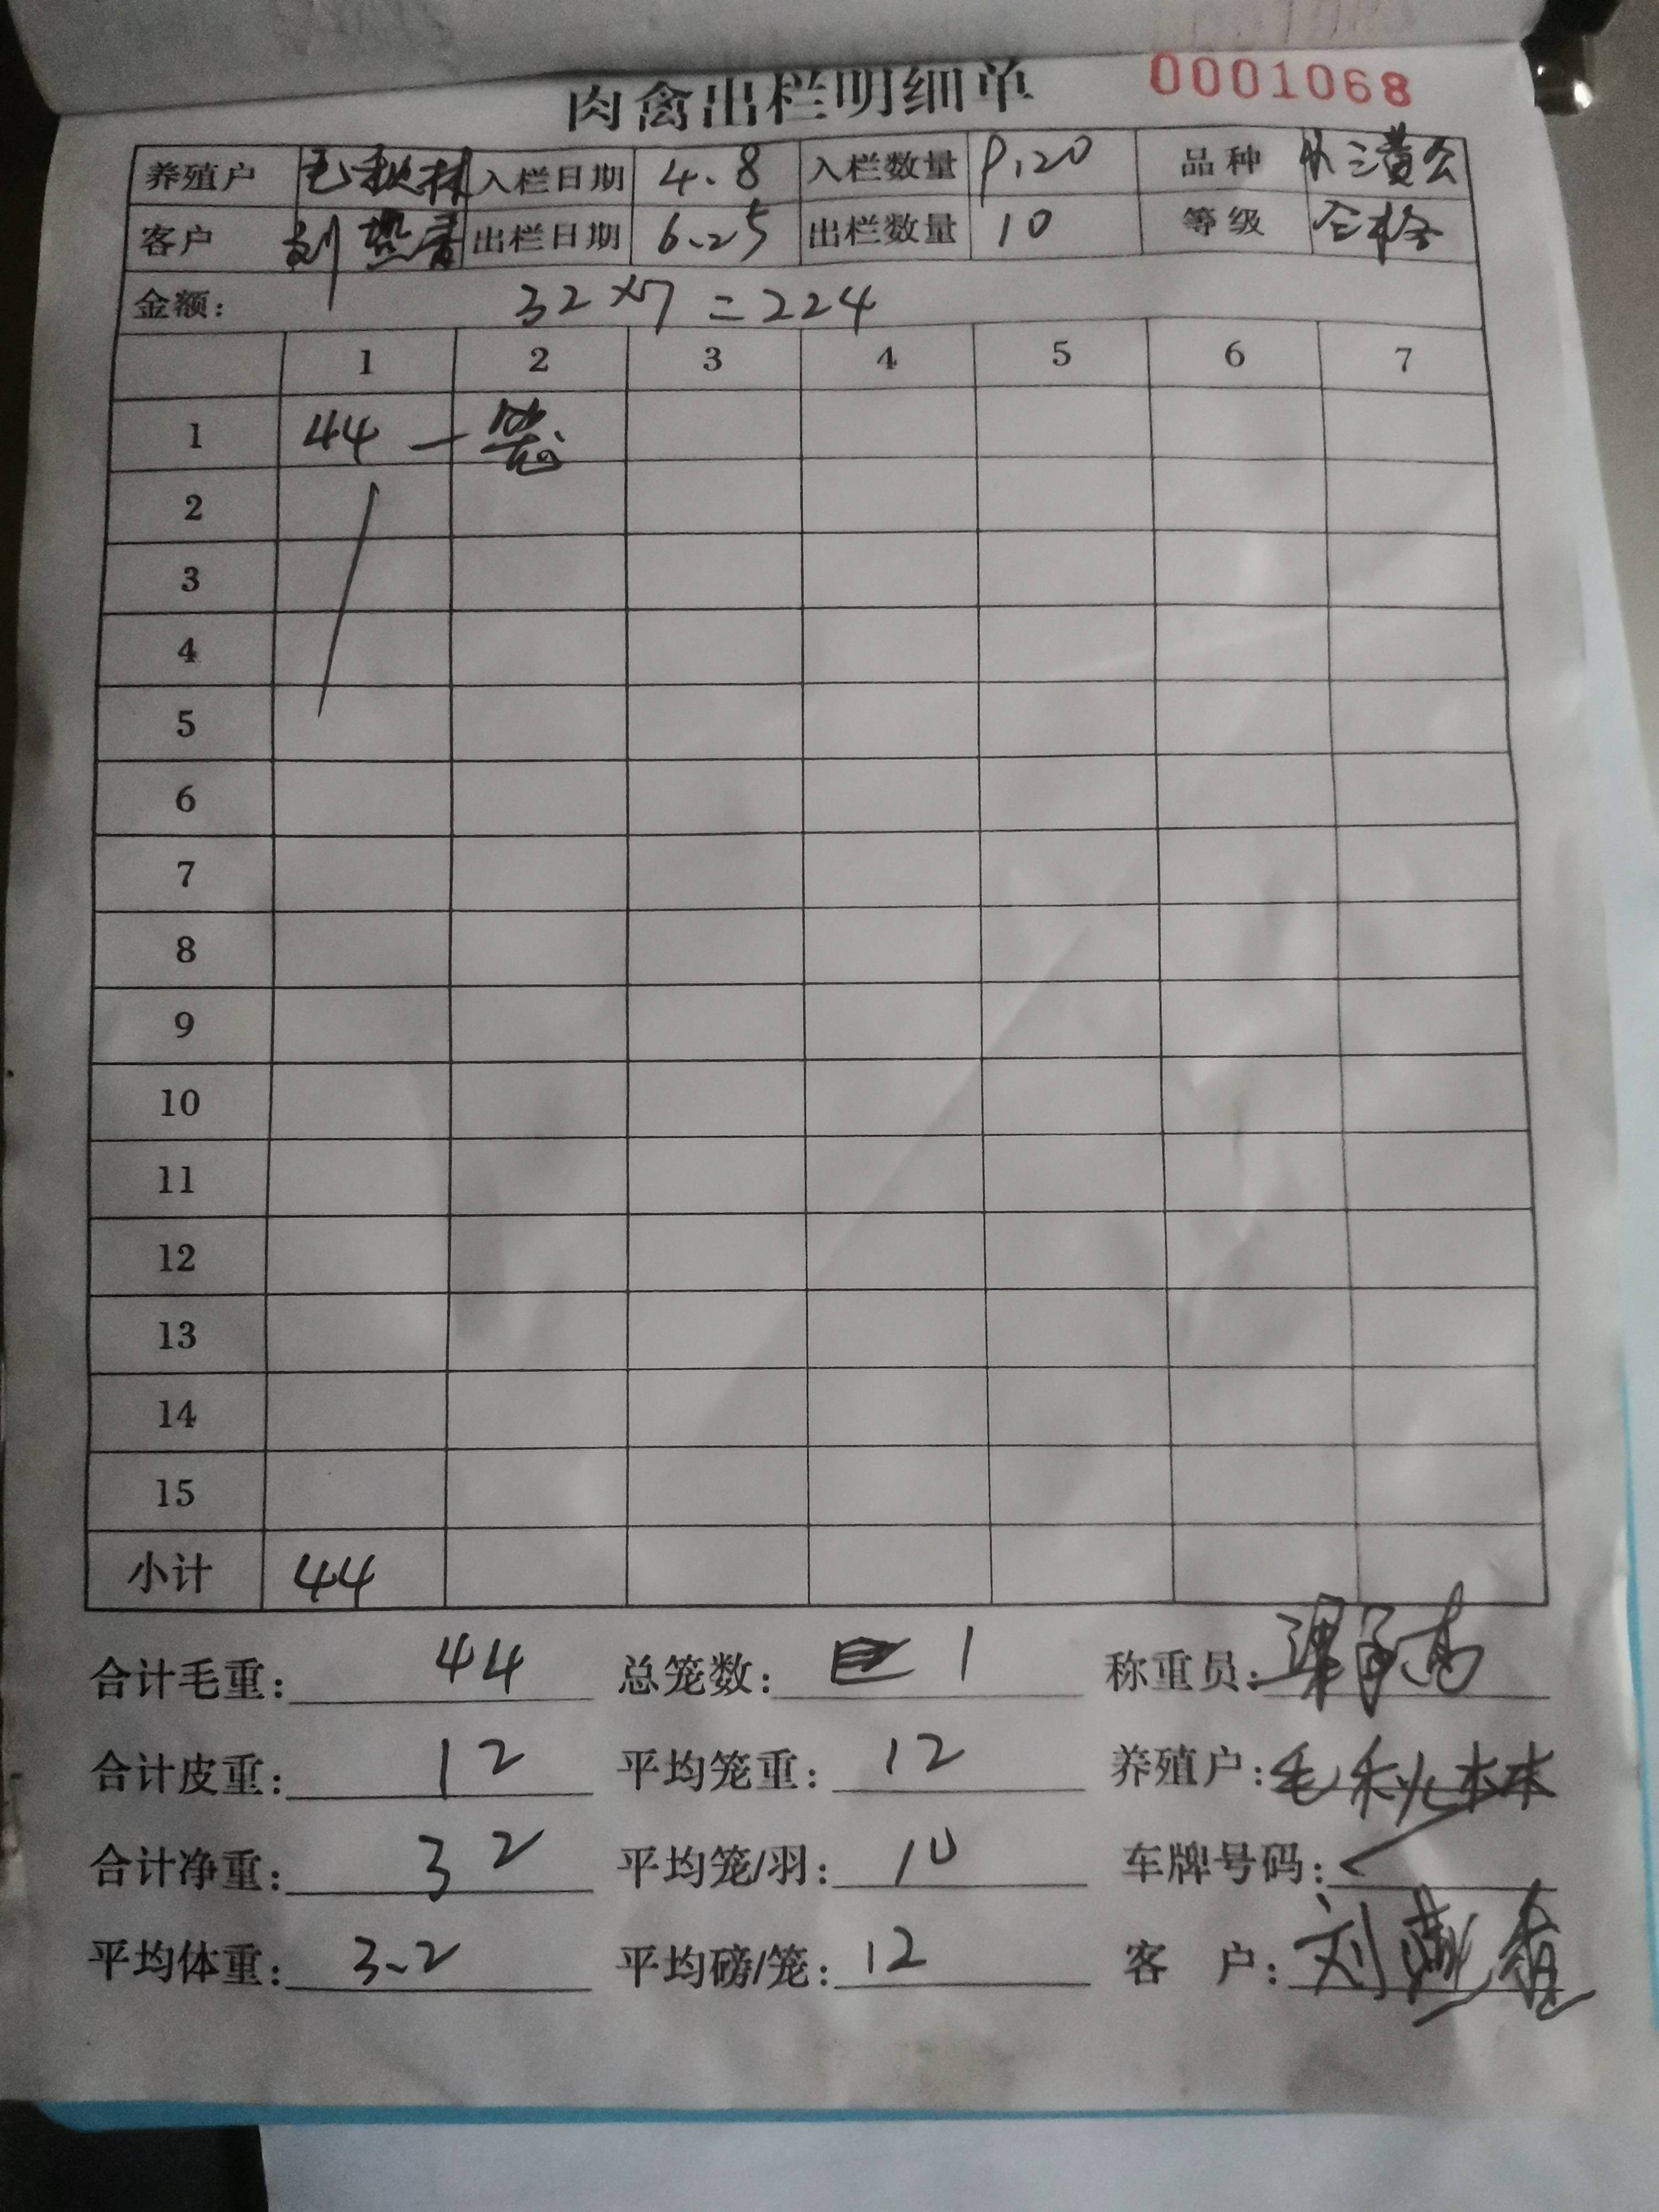 肉禽出栏明细单 0001068
养殖户 毛秋林 入栏日期 4.8 入栏数量 9120 品种
客户 刘 出栏日期 6.25 出栏数量 10 等级
金额: 32×7=224
1 2 3 4 5 6 7
1 44 一笼
2
3
4
5
6
7
8
9
10
11
12
13
14
15
小计 44
合计毛重: 44 总笼数: 1 称重员:
合计皮重: 12 平均笼重: 12 养殖户: 毛秋林
合计净重: 32 平均笼/羽: 10 车牌号码:
平均体重: 3.2 平均磅/笼: 12 客 户: 刘